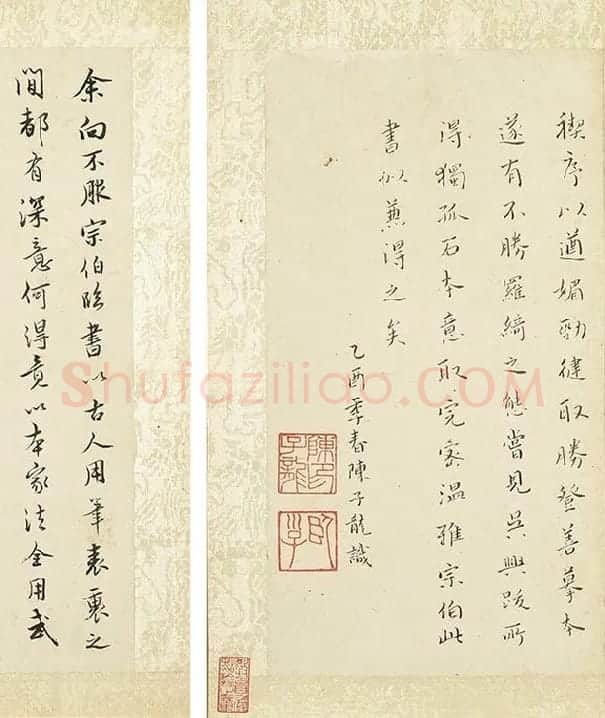 禊序以遒媚勁健取勝登善摹本
遂有不勝羅綺之態嘗見吳興跋所
得獨孤石本意取完密溫雅宗伯此
書似兼得之矣
乙酉季春陳子龍識
陳印子龍
臥子
余向不服宗伯臨書以古人用筆表裏之
間都有深意何得竟以本家法全用或
Shufaziliao.COM